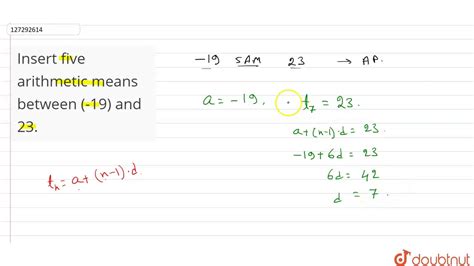 127292614
Insert five
arithmetic means
between (-19) and
23.
-19 5AM 23 → AP.
a = -19, t₇ = 23.
a+(n-1)·d = 23
-19+6d = 23
6d = 42
d = 7.
tₙ = a+(n-1)·d.
doubtnut